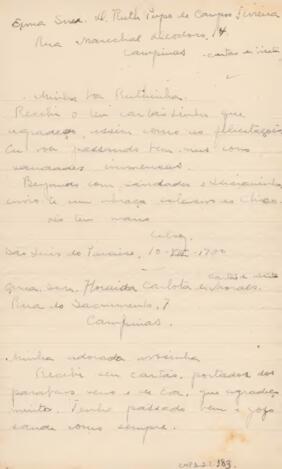 Exma Snra. D. Ruth Pupo de Campos Ferreira
Rua Marechal Deodoro, 14
Campinas cartão de visita
Minha boa Ruthinha
Recebi o teu cartãosinho que
agradeço, assim como as felicitações
Eu vou passando bem mas com
saudades immensas.
Beijando com saudades a
envio te um abraço extensivo ao Chico.
teu mano
Celso
São Luis do Parahytinga, 10- -1900
cartão de visita
Exma. Snra. Carlota de Moraes
Rua do Sacramento, 7
Campinas.
Minha adorada avósinha
Recebi seu cartão, portador dos
parabens seus e de Eva, que agradeço
muito. Tenho passado bem e gozo
saude como sempre.
183